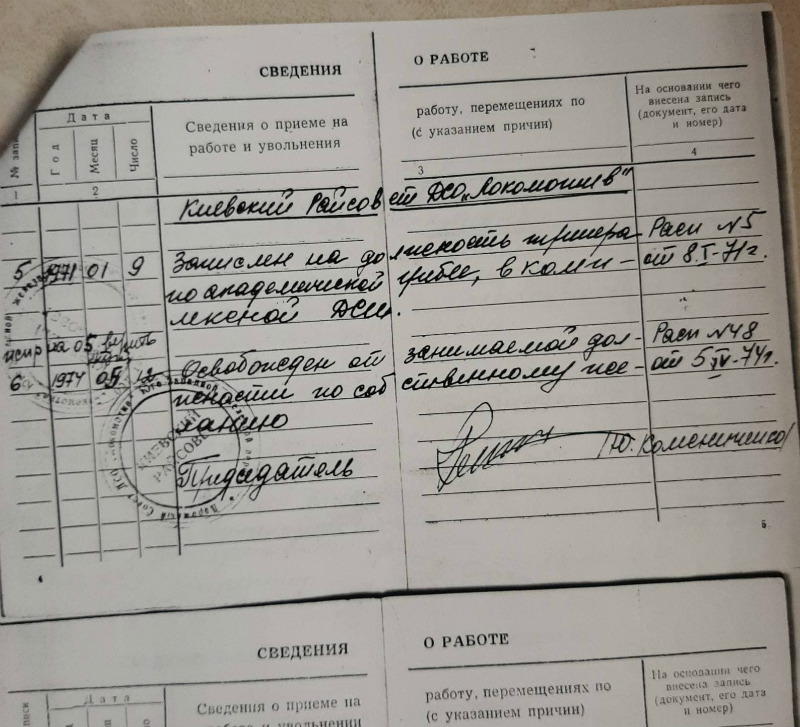 СВЕДЕНИЯ
О РАБОТЕ
№
Дата
Год
Месяц
Число
Сведения о приеме на
работе и увольнения
работу, перемещениях по
(с указанием причин)
На основании чего
внесена запись
(документ, его дата
и номер)
1
2
3
4
Киевский Райсовет ДСО „Локомотив"
5 1971 01 9 Зачислен на должность тренера Расп №5
по академической гребле, в комп- от 8.I-71г.
лексной ДСШ.
05 верить
6 1974 05 Освобожден от занимаемой дол- Расп №48
жности по собственному же- от 5 IV-74г.
ланию
КИЕВСКИЙ
РАЙСОВЕТ
Председатель
4
5
СВЕДЕНИЯ
О РАБОТЕ
Дата
Сведения о приеме на
работе и увольнении
работу, перемещениях по
(с указанием причин)
На основании чего
внесена запись
(документ, его дата
и номер)